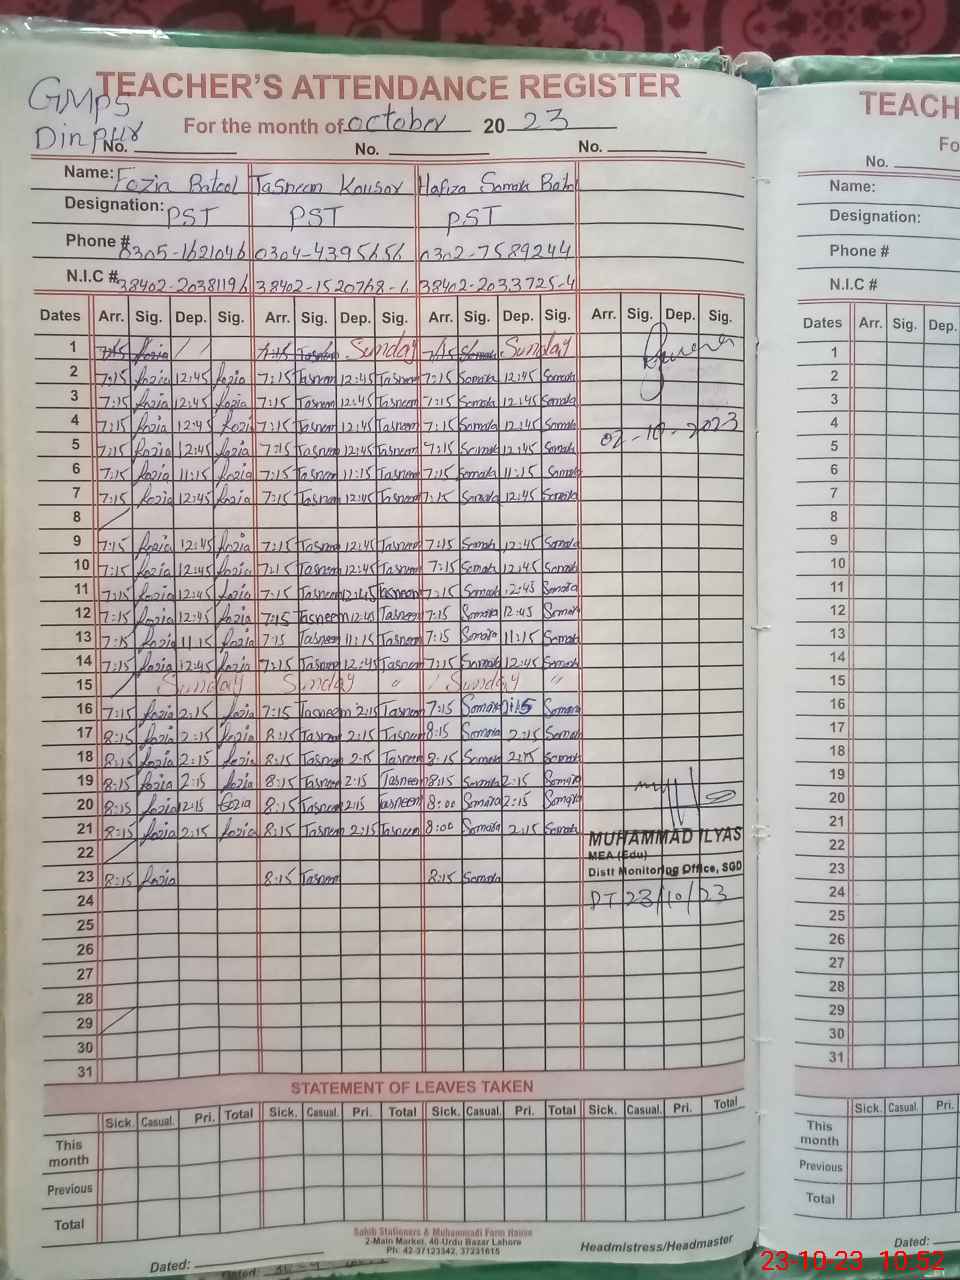 TEACHER'S ATTENDANCE REGISTER
GMPS
Dinpur
For the month of October 20 23
No. No. No.
Name: Fozia Batool Tasneem Kousar Hafiza Samara Bato
Designation: PST PST PST
Phone # 0305-1621046 0304-4395656 0302-7589244
N.I.C # 38402-2038119 38402-1520768-6 38402-2033725-4
Dates Arr. Sig. Dep. Sig. Arr. Sig. Dep. Sig. Arr. Sig. Dep. Sig. Arr. Sig. Dep. Sig.
1 7:15 Fozia 7:15 Sunday 7:15 Sunday
2 7:15 Fozia 12:45 Fozia 7:15 Tasneem 12:45 Tasneem 7:15 Samara 12:45 Samara
3 7:15 Fozia 12:45 Fozia 7:15 Tasneem 12:45 Tasneem 7:15 Samara 12:45 Samara
4 7:15 Fozia 12:45 Fozia 7:15 Tasneem 12:45 Tasneem 7:15 Samara 12:45 Samara
02-10-2023
5 7:15 Fozia 12:45 Fozia 7:15 Tasneem 12:45 Tasneem 7:15 Samara 12:45 Samara
6 7:15 Fozia 11:15 Fozia 7:15 Tasneem 11:15 Tasneem 7:15 Samara 11:15 Samara
7 7:15 Fozia 12:45 Fozia 7:15 Tasneem 12:45 Tasneem 7:15 Samara 12:45 Samara
8
9 7:15 Fozia 12:45 Fozia 7:15 Tasneem 12:45 Tasneem 7:15 Samara 12:45 Samara
10 7:15 Fozia 12:45 Fozia 7:15 Tasneem 12:45 Tasneem 7:15 Samara 12:45 Samara
11 7:15 Fozia 12:45 Fozia 7:15 Tasneem 12:45 Tasneem 7:15 Samara 12:45 Samara
12 7:15 Fozia 12:45 Fozia 7:15 Tasneem 12:45 Tasneem 7:15 Samara 12:45 Samara
13 7:15 Fozia 11:15 Fozia 7:15 Tasneem 11:15 Tasneem 7:15 Samara 11:15 Samara
14 7:15 Fozia 12:45 Fozia 7:15 Tasneem 12:45 Tasneem 7:15 Samara 12:45 Samara
15 Sunday Sunday " Sunday "
16 7:15 Fozia 2:15 Fozia 7:15 Tasneem 2:15 Tasneem 7:15 Samara Samara
17 8:15 Fozia 2:15 Fozia 8:15 Tasneem 2:15 Tasneem 8:15 Samara 2:15 Samara
18 8:15 Fozia 2:15 Fozia 8:15 Tasneem 2:15 Tasneem 8:15 Samara 2:15 Samara
19 8:15 Fozia 2:15 Fozia 8:15 Tasneem 2:15 Tasneem 8:15 Samara 2:15 Samara
20 8:15 Fozia 12:15 Fozia 8:15 Tasneem 12:15 Tasneem 8:00 Samara 2:15 Samara
21 8:15 Fozia 2:15 Fozia 8:15 Tasneem 2:15 Tasneem 8:00 Samara 2:15 Samara
MUHAMMAD ILYAS
22
MEA (Edu)
23 8:15 Fozia 8:15 Tasneem 8:15 Samara
Distt Monitoring Office, SGD
24
DT 23/10/23
25
26
27
28
29
30
31
STATEMENT OF LEAVES TAKEN
Sick. Casual. Pri. Total Sick. Casual. Pri. Total Sick. Casual. Pri. Total Sick. Casual. Pri. Total
This month
Previous
Total
Sahib Stationers & Muhammadi Form House
2-Main Market, 40-Urdu Bazar Lahore
Ph: 42-37123342, 37231615
Dated: Headmistress/Headmaster
TEACH
Fo
No.
Name:
Designation:
Phone #
N.I.C #
Dates Arr. Sig. Dep.
1
2
3
4
5
6
7
8
9
10
11
12
13
14
15
16
17
18
19
20
21
22
23
24
25
26
27
28
29
30
31
Sick. Casual. Pri.
This month
Previous
Total
Dated:
23-10-23 10:52